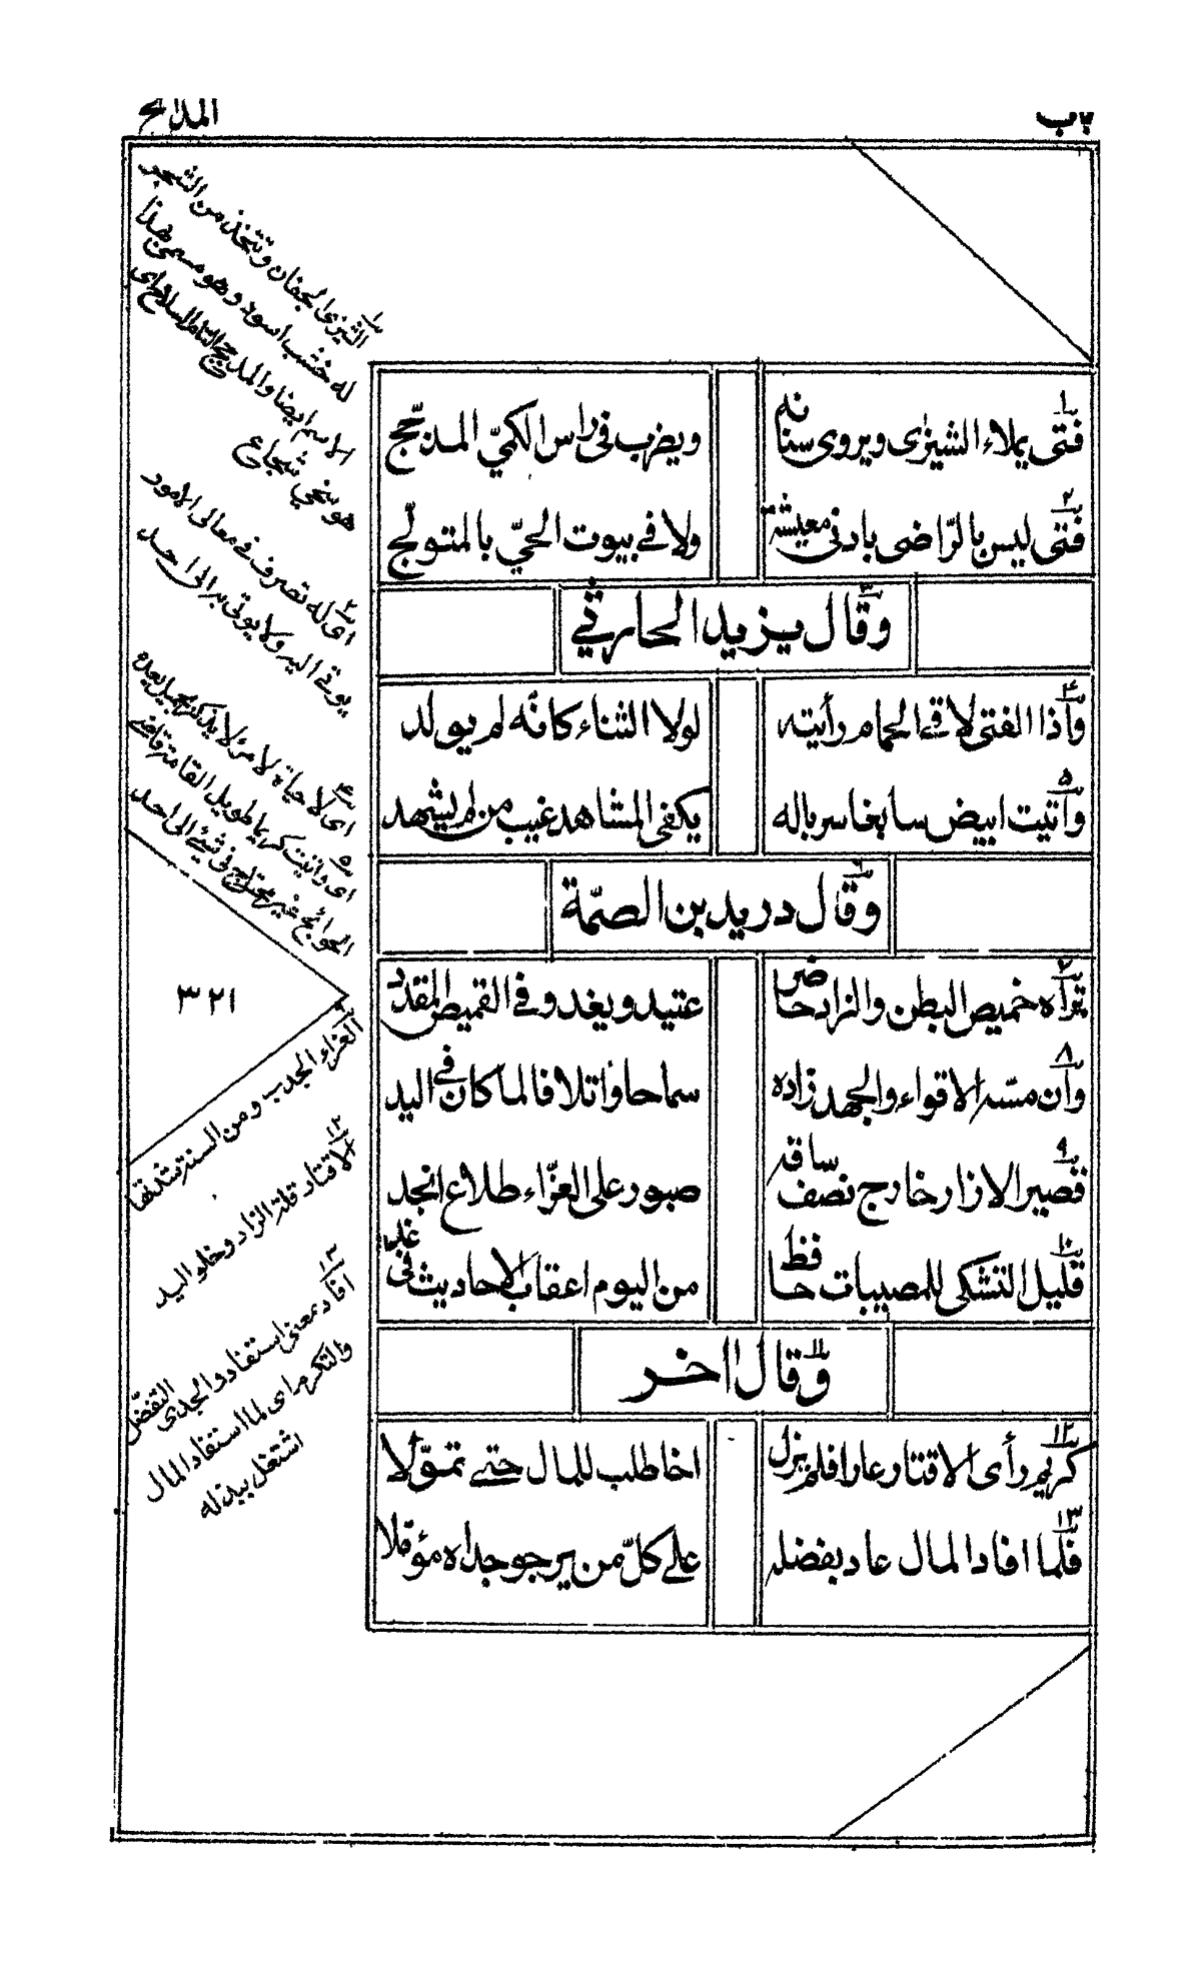 باب المدائح
١ فتى يملاء الشيزى ويروى سنانه ويضرب فى راس الكمىّ المدجّج
٢ فتى ليس بالرّاضى بادنى معيشة ولا فى بيوت الحىّ بالمتولّج
٣ وقال يزيد الحارثي
٤ واذا الفتى لاقى الحمام رأيته لولا الثناء كانّه لم يولد
٥ واتيت ابيض سابغا سرباله يكفى المشاهد غيب من لم يشهد
٦ وقال دريد بن الصمّة
٧ تراه خميص البطن والزاد حاضر عتيد ويغدو فى القميص المقدد
٨ وان مسّه الاقواء والجهد زاده سماحا واتلافا لما كان فى اليد
٩ قصير الازار خارج نصف ساقه صبور على العزّاء طلاع انجد
١٠ قليل التشكى للمصيبات حافظ من اليوم اعقاب الاحاديث فى غد
١١ وقال اخر
١٢ كريم رأى الاقتار عارا فلم يزل اخا طلب للمال حتى تموّلا
١٣ فلّما افاد المال عاد بفضله على كلّ من يرجو جداه مؤمّلا
١ الشيزى الجفان وتتخذ من الشجر
له خشب اسود وهو مسمى بهذا
الاسم ايضا والمدجج التام السلاح اى
هو سخي شجاع
٢ اى له تصرف فى معالى الامور
يوتى اليه ولا يوتى به الى احد
٤ اى لا حياة لامرئ لا يذكر بجميل بعده
٥ اى واتيت كريما طويل القامة قاضى
الحوائج غير محتاج فى شيئ الى احد
٣٢١
٩ العزاء الجدب ومن السنة شدتها
١٢ الاقتار قلة الزاد وخلو اليد
١٣ افاد بمعنى استفاد والجدى التفضّل
والتكرم اى لما استفاد المال
اشتغل ببذله